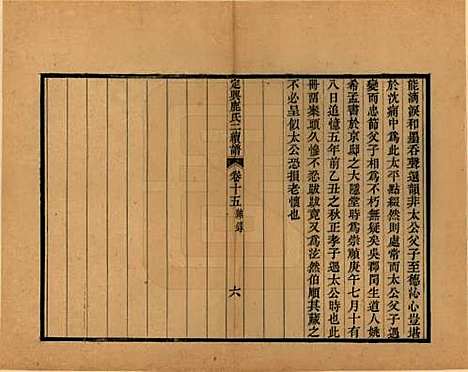 能漬淚和墨吞聲選韻非太公父子至德沁心豈堪
於沈痛中為此太平點綴然則處常而太公父子遇
變而忠節父子相為不朽無疑矣吳郡閆生道人姚
希孟書於京邸之大隱堂時為崇禎庚午七月十有
八日追憶五年前乙丑之秋正孝子過太公時也此
冊留案頭久慘不忍跋跋竟又為泫然伯順其藏之
不必呈似太公恐損老懷也
定興鹿氏二續譜 卷十五 雜錄 六